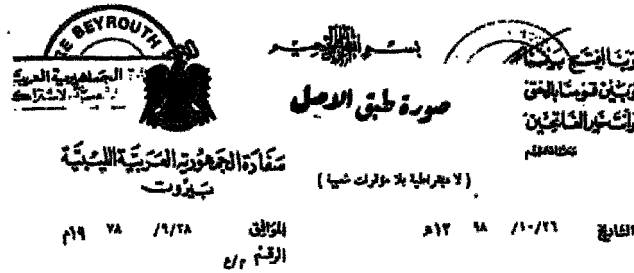 RE BEYROUTH
بسم الله الرحمن الرحيم
ربنا افتح بيننا
وبين قومنا بالحق
وأنت خير الفاتحين
صورة طبق الاصل
سفارة الجمهورية العربية الليبية
بيروت
( لا ديمقراطية بلا مؤتمرات شعبية )
التاريخ ١٠/٢٦/ ٩٨ ١٣هـ
الموافق ٩/٢٨/ ٧٨ ١٩م
الرقم م/ع